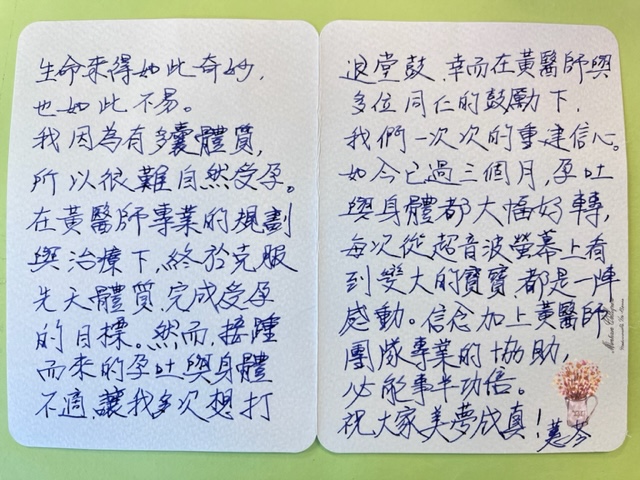 生命來得如此奇妙,
也如此不易。
我因為有多囊體質,
所以很難自然受孕。
在黃醫師專業的規劃
與治療下,終於克服
先天體質,完成受孕
的目標。然而,接踵
而來的孕吐與身體
不適,讓我多次想打
退堂鼓,幸而在黃醫師與
多位同仁的鼓勵下,
我們一次次的重建信心。
如今已過三個月,孕吐
與身體都大幅好轉,
每次從超音波螢幕上看
到變大的寶寶,都是一陣
感動。信念加上黃醫師
團隊專業的協助,
必能事半功倍。
祝大家美夢成真!
蕙芩